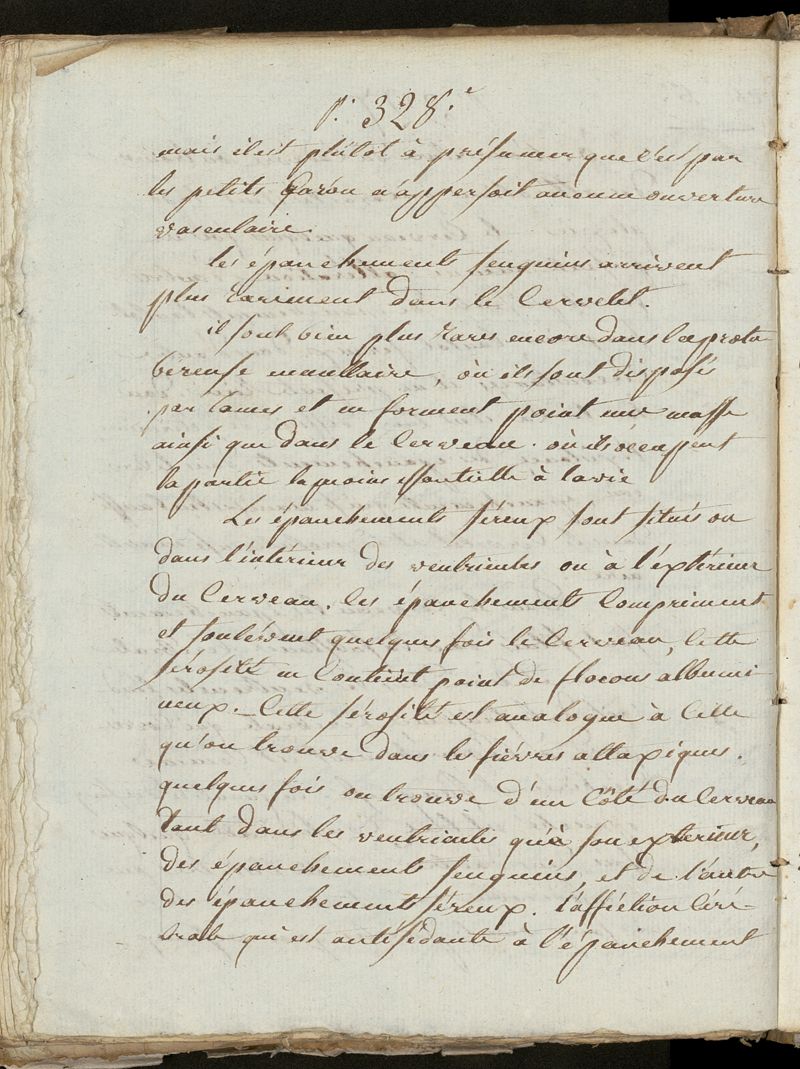 p. 328.e
mais il est plûtôt à présumer que c'est par
les petits car on n'apperçoit aucune ouverture
vasculaire.
les épanchements sanguins arrivent
plus rarement dans le Cervelet.
il sont bien plus rares encore dans la protu
bérense annulaire, où ils sont disposés
par lames et ne forment point une masse
ainsi que dans le Cerveau. où ils occupent
la partie la moins essentielle à la vie
Les épanchements séreux sont situés ou
dans l'intérieur des ventricules ou à l'extérieur
du Cerveau. les épanchements Compriment
et soulèvent quelques fois le Cerveau, Cette
sérosité ne Contient point de flocons albumi
neux. Cette sérosité est analogue à Celle
qu'on trouve dans les fièvres attaxiques.
quelques fois on trouve d'un Côté du Cerveau
tant dans les ventricules qu'à son exterieur,
des épanchements sanguins, et de l'autre
des épanchements séreux. l'affection Céré-
brale qui est antésédante à l'épanchement